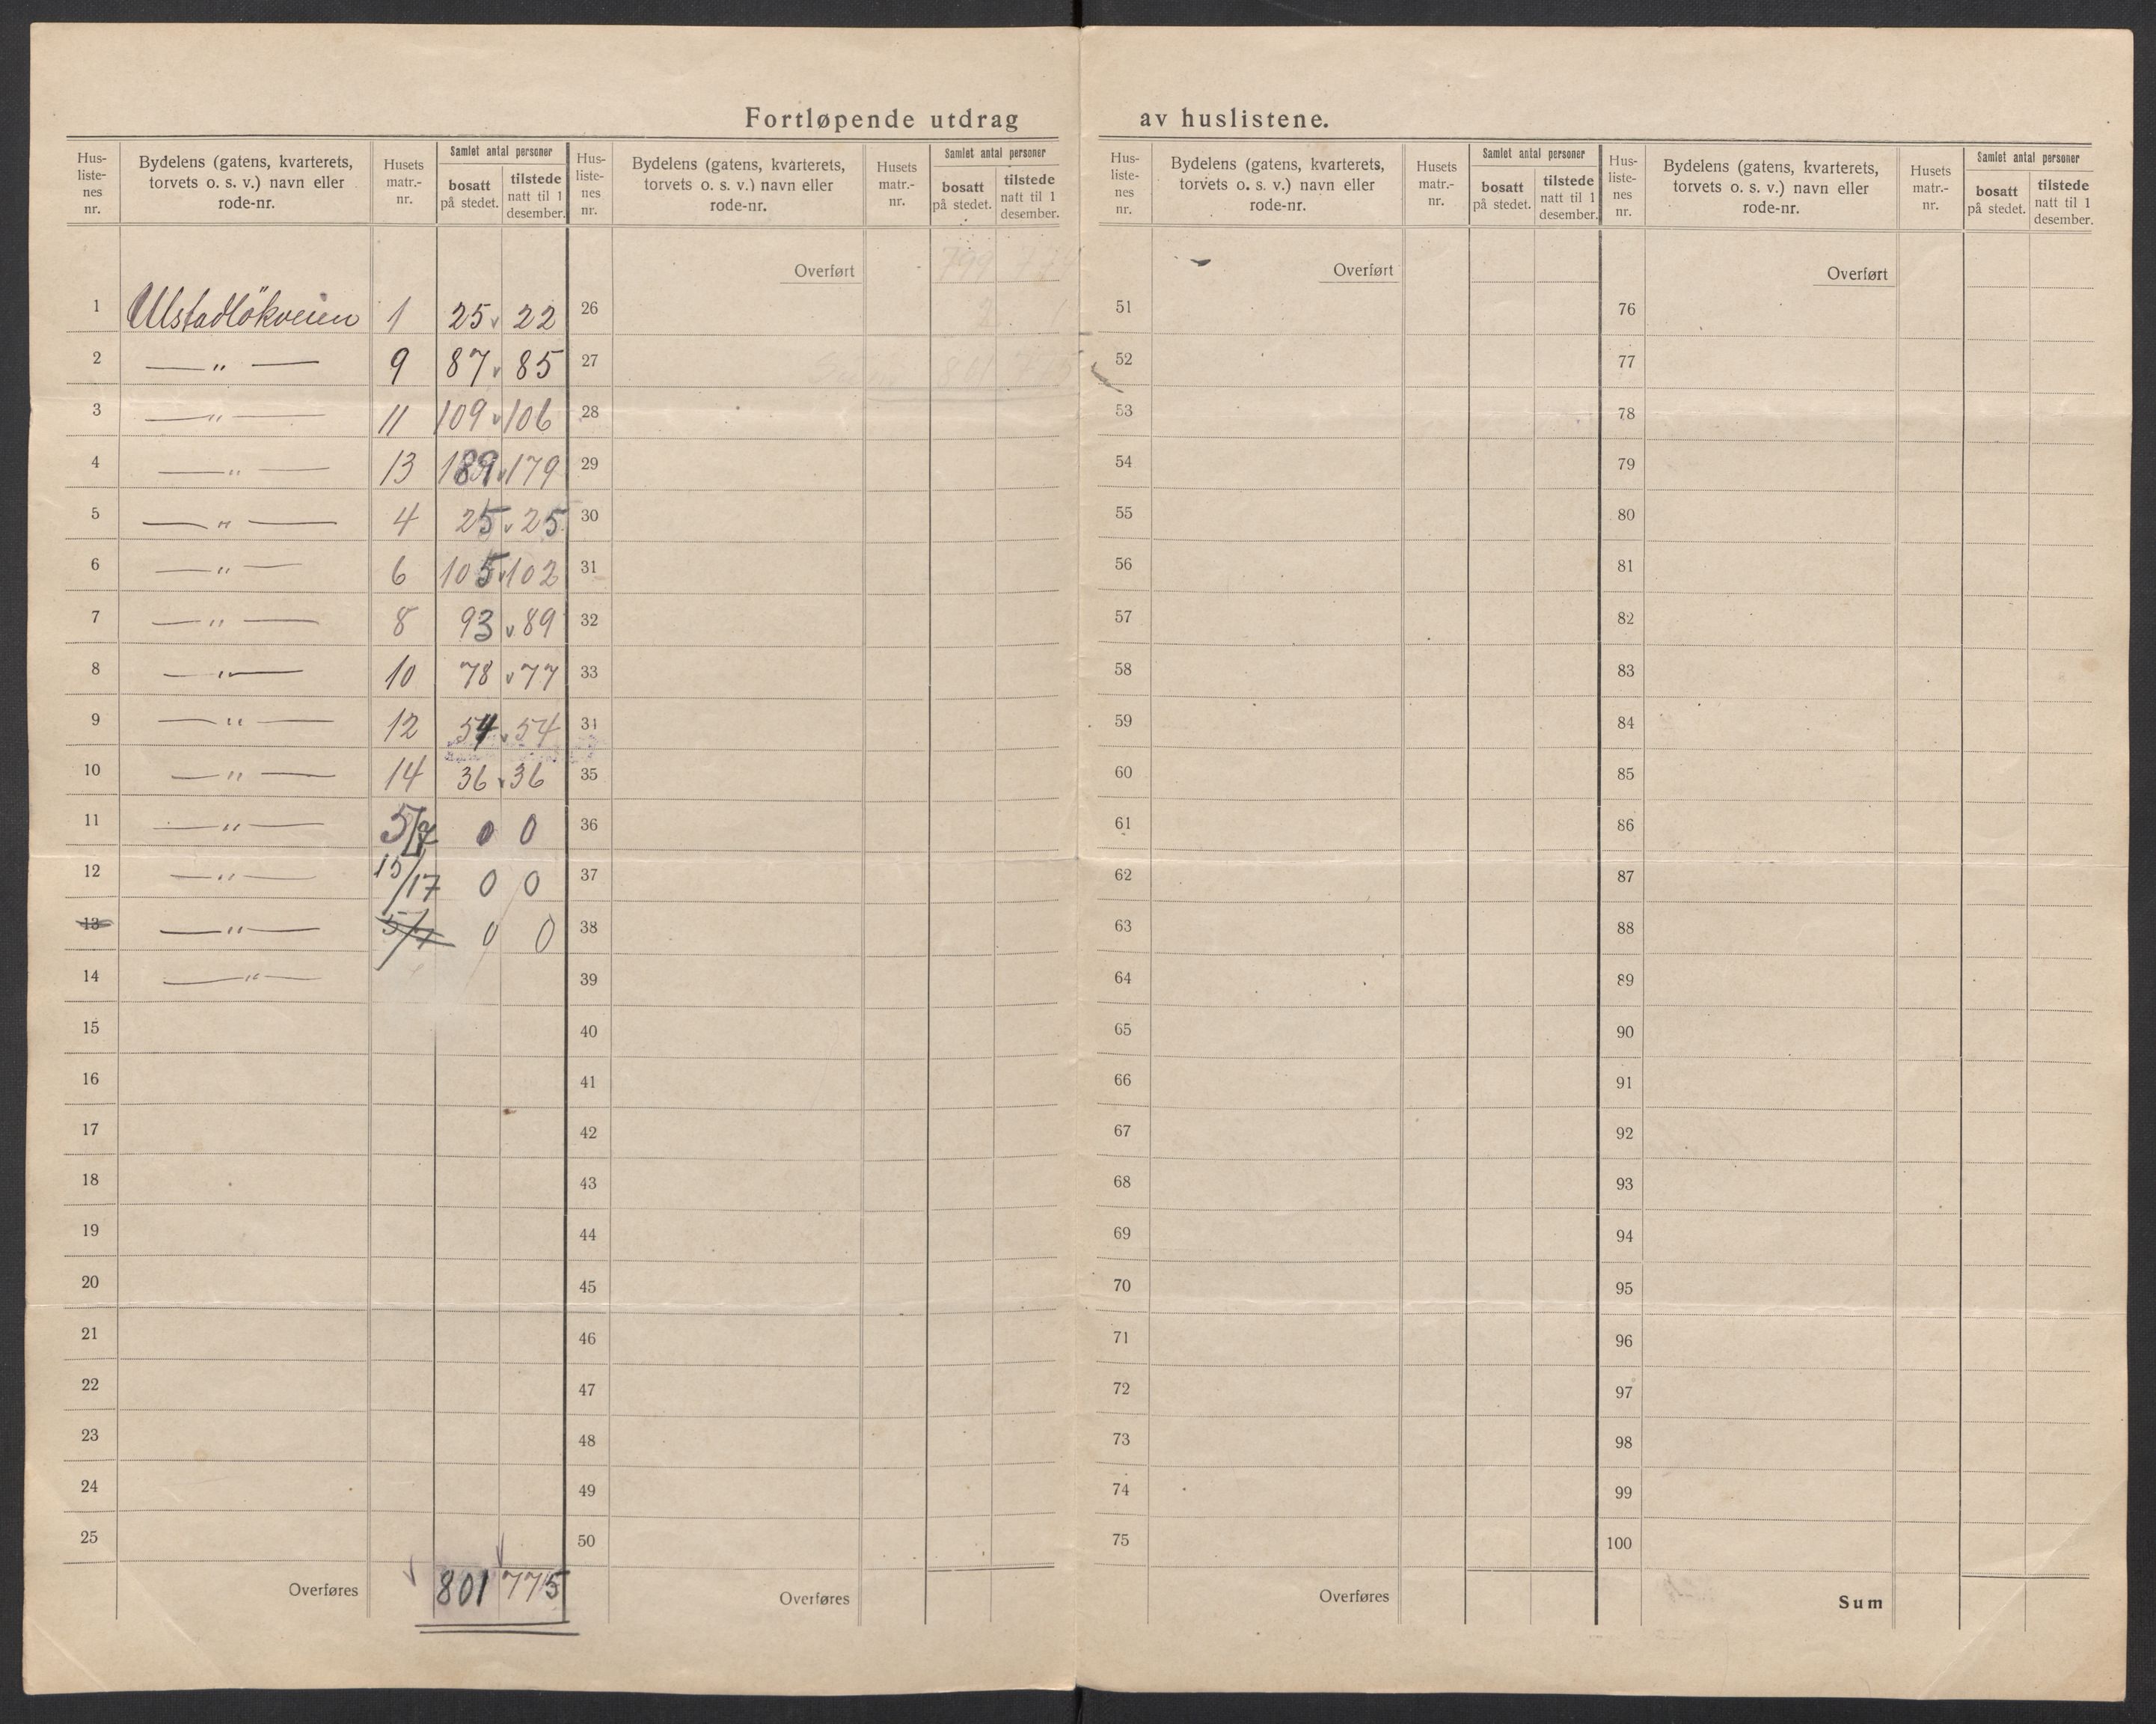 Fortløpende utdrag av huslistene.
Hus-listenes nr. | Bydelens (gatens, kvarterets, torvets o. s. v.) navn eller rode-nr. | Husets matr.-nr. | Samlet antal personer bosatt på stedet. | tilstede natt til 1 desember. | Hus-listenes nr. | Bydelens (gatens, kvarterets, torvets o. s. v.) navn eller rode-nr. | Husets matr.-nr. | Samlet antal personer bosatt på stedet. | tilstede natt til 1 desember. | Hus-listenes nr. | Bydelens (gatens, kvarterets, torvets o. s. v.) navn eller rode-nr. | Husets matr.-nr. | Samlet antal personer bosatt på stedet. | tilstede natt til 1 desember. | Hus-listenes nr. | Bydelens (gatens, kvarterets, torvets o. s. v.) navn eller rode-nr. | Husets matr.-nr. | Samlet antal personer bosatt på stedet. | tilstede natt til 1 desember.
Overført 799 774 Overført Overført
1 Ulstadlökveien 1 25 v 22 26 2 1 51 76
2 — " — 9 87 v 85 27 Sum 801 775 52 77
3 — " — 11 109 v 106 28 53 78
4 — " — 13 189 v 179 29 54 79
5 — " — 4 25 v 25 30 55 80
6 — " — 6 105 v 102 31 56 81
7 — " — 8 93 v 89 32 57 82
8 — " — 10 78 v 77 33 58 83
9 — " — 12 54 v 54 34 59 84
10 — " — 14 36 v 36 35 60 85
11 — " — 5/7 0 0 36 61 86
12 — " — 15/17 0 0 37 62 87
13 — " — 5/7 0 0 38 63 88
14 — " — 39 64 89
15 40 65 90
16 41 66 91
17 42 67 92
18 43 68 93
19 44 69 94
20 45 70 95
21 46 71 96
22 47 72 97
23 48 73 98
24 49 74 99
25 50 75 100
Overføres 801 775 Overføres Overføres Sum